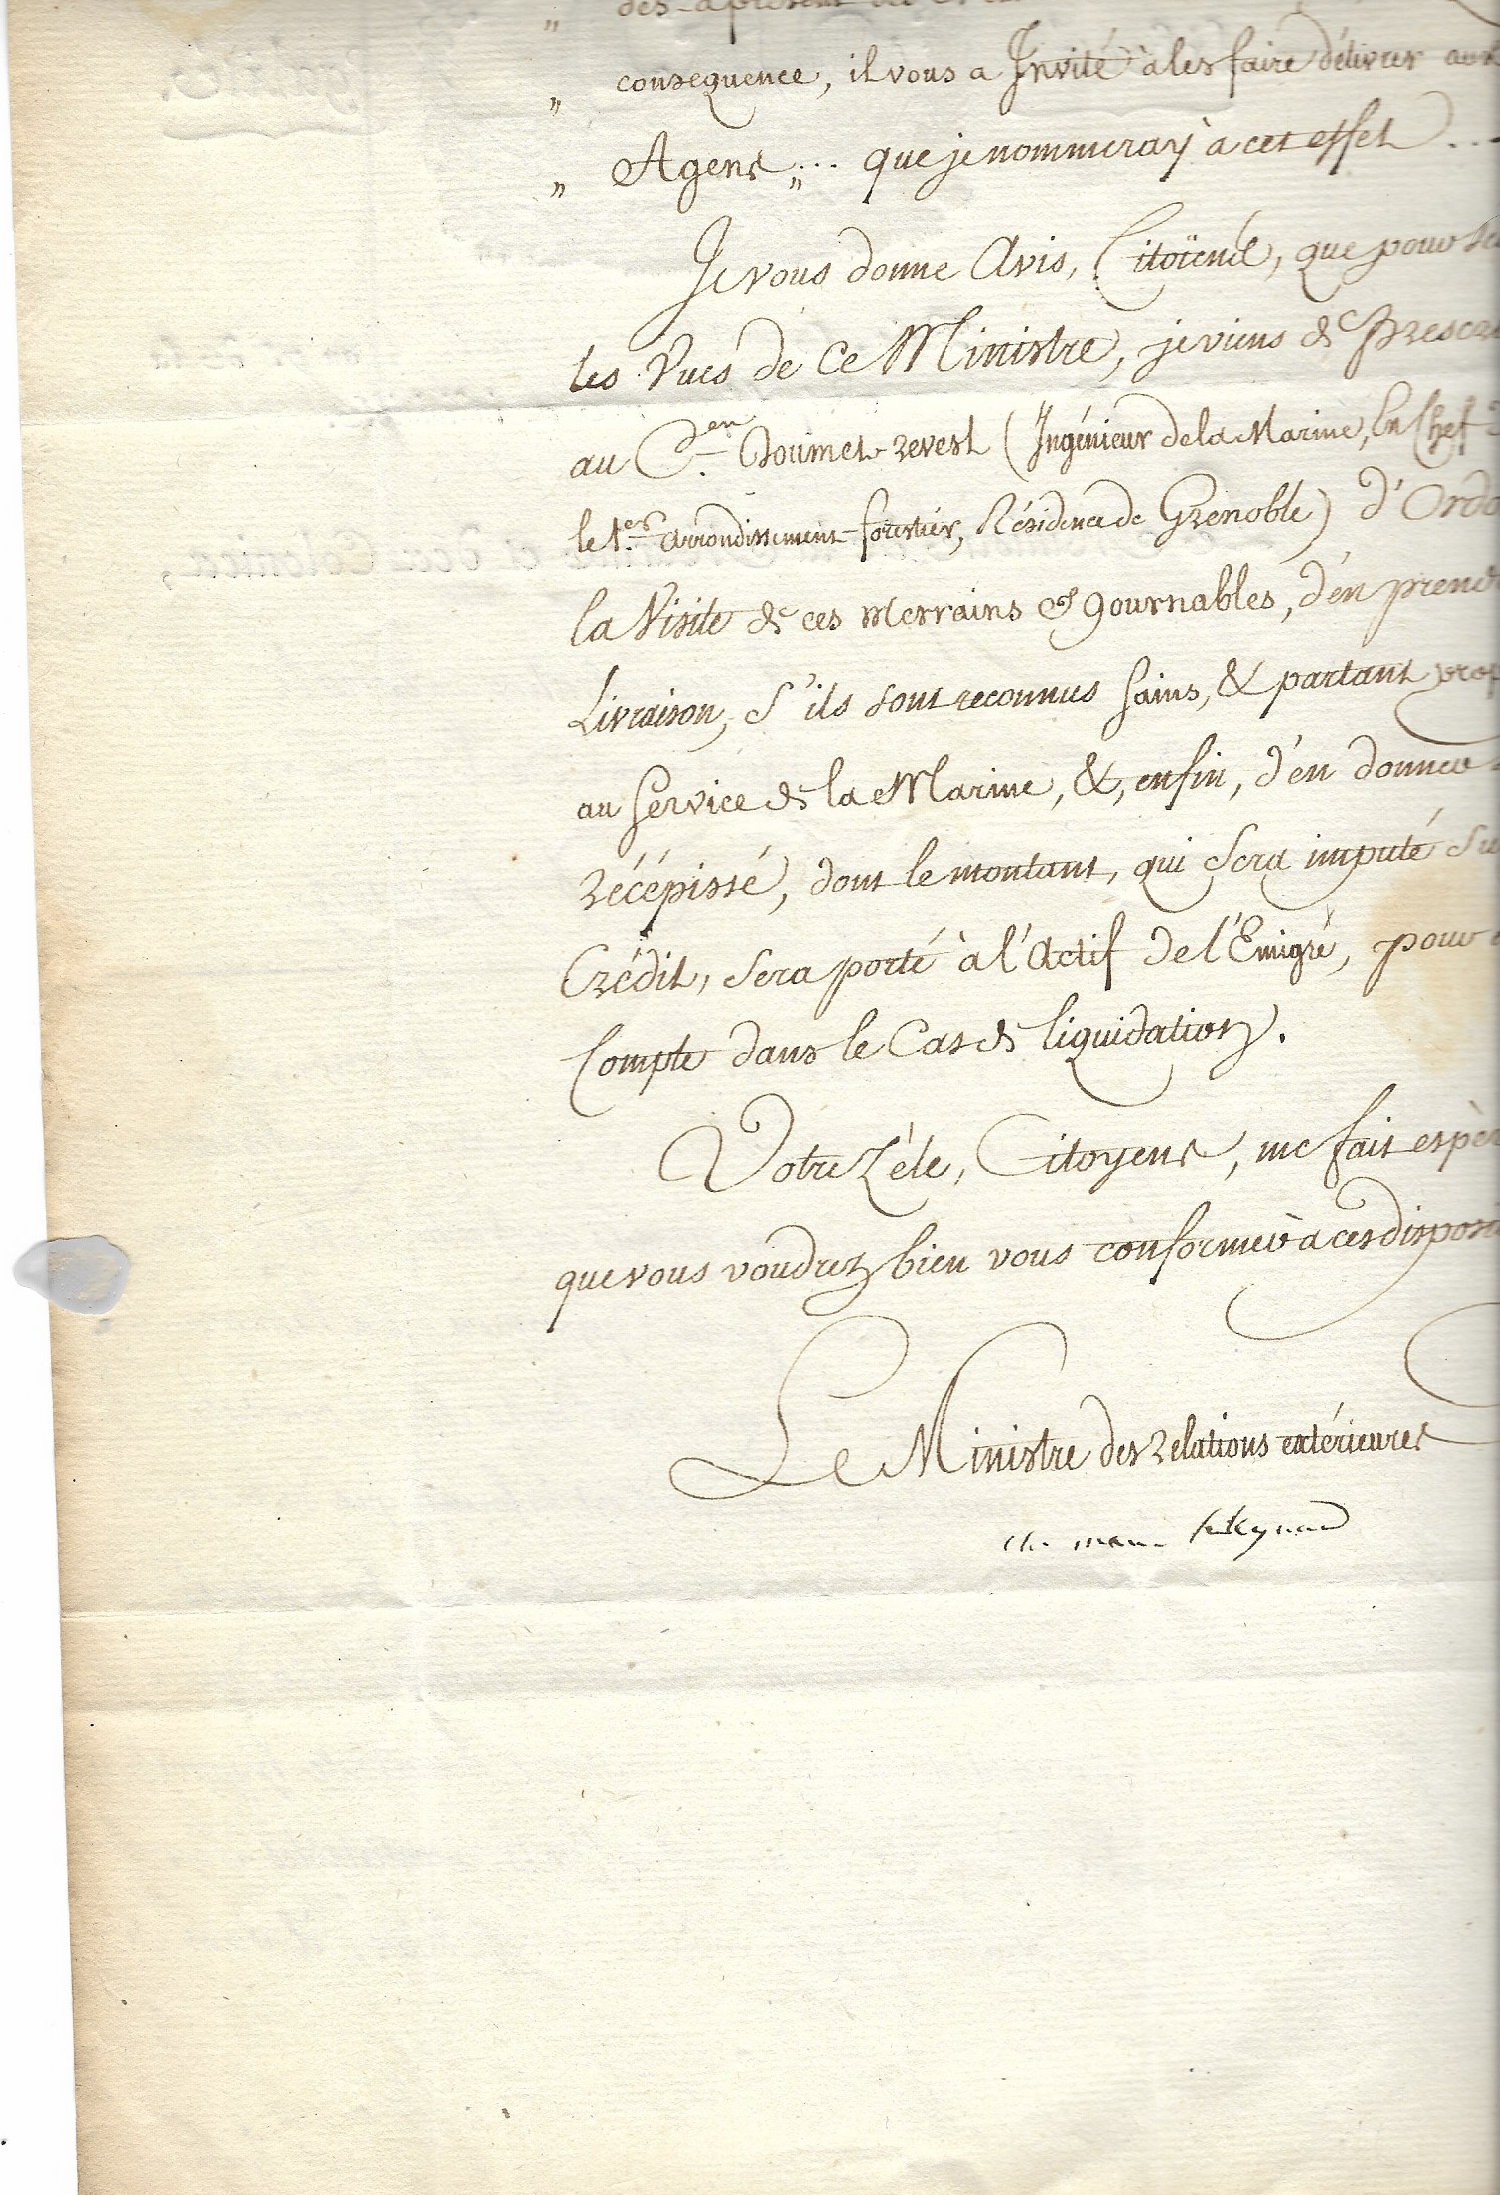 „ dès-à présent
„ consequence, il vous a Invité à les faire délivrer aux
„ Agens „... que je nommeray à cet effet ...
Je vous donne Avis, Citoïens, que pour
les Vues de Ce Ministre, je viens de Prescr
au C.en Doumet-revest (Ingénieur de la Marine, En Chef
le 1.er arrondissement-forestier, Résidence de Grenoble) d'Ordo
la Visite de ces merrains & gournables, d'en prend
Livraison, s'ils sont reconnus sains, & partant prop
au service de la Marine, &, enfin, d'en donner
récépissé, dont le montant, qui sera imputé su
Crédit, sera porté à l'Actif de l'Emigré, pour
Compte dans le Cas de liquidation.
Votre Zéle, Citoyens, me fait espèr
que vous voudrez bien vous conformer à ces disposi
Le Ministre des relations extérieures
ch. mau. talleyrand